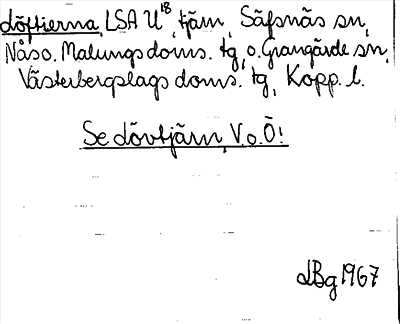 döftierna, LSA U¹⁸, tjärn, Säfsnäs sn,
Nås o. Malungs doms. tg, o. Grangärde sn,
Västerbergslags doms. tg, Kopp. l.
Se dövtjärn, V. o. Ö!
LBg 1967